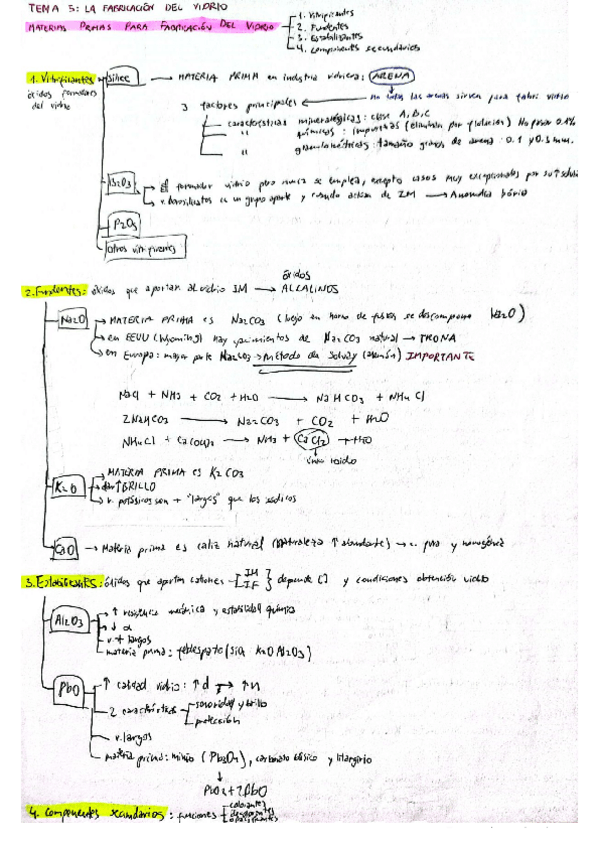 TEMA 5: LA FABRICACIÓN DEL VIDRIO
MATERIAS PRIMAS PARA FABRICACIÓN DEL VIDRIO
1. Vitrificantes
2. Fundentes
3. Estabilizantes
4. Componentes secundarios
1. Vitrificantes
óxidos formadores
del vidrio
Sílice → MATERIA PRIMA en industria vidriera: ARENA
No todas las arenas sirven para fabri. vidrio
3 factores principales
características mineralógicas: clase A, B, C
" químicas: impurezas (eliminan por flotación) No pasar 0.1%
" granulométricas: tamaño granos de arena: 0.1 y 0.3 mm.
B2O3
El formador vidrio pero nunca se emplea, excepto casos muy excepcionales por su ↑
v. borosilicatos es un grupo aparte y cuando actúan de → Anomalía bórica
P2O5
Otros vitrificantes
2. Fundentes: óxidos que aportan al vidrio IM → óxidos ALCALINOS
Na2O
MATERIA PRIMA es Na2CO3 (bajo en horno de fusión se descompone Na2O)
en EEUU (Wyoming) hay yacimientos de Na2CO3 natural → TRONA
en Europa: mayor parte Na2CO3 → método de Solvay IMPORTANTE
NaCl + NH3 + CO2 + H2O → NaHCO3 + NH4Cl
2NaHCO3 → Na2CO3 + CO2 + H2O
NH4Cl + Ca(OH)2 → NH3 + CaCl2 + H2O
único residuo
K2O
MATERIA PRIMA es K2CO3
dan ↑ BRILLO
v. potásicos son + "largos" que los sódicos
CaO → Materia prima es caliz natural (Naturaleza ↑ abundante) → c. pura y homogénea
3. Estabilizantes: óxidos que aportan cationes IM IF depende [] y condiciones obtención vidrio
Al2O3
↑ resistencia mecánica y estabilidad química
↓ α
v. + largos
materia prima: feldespato (
PbO
↑ calidad vidrio: ↑ d → ↑ n
2 características
sonoridad y brillo
protección
v. largos
materia prima: minio (Pb3O4), carbonato básico y litargirio
PbO2 + 2PbO
4. Componentes secundarios: funciones
colorantes
opacificantes